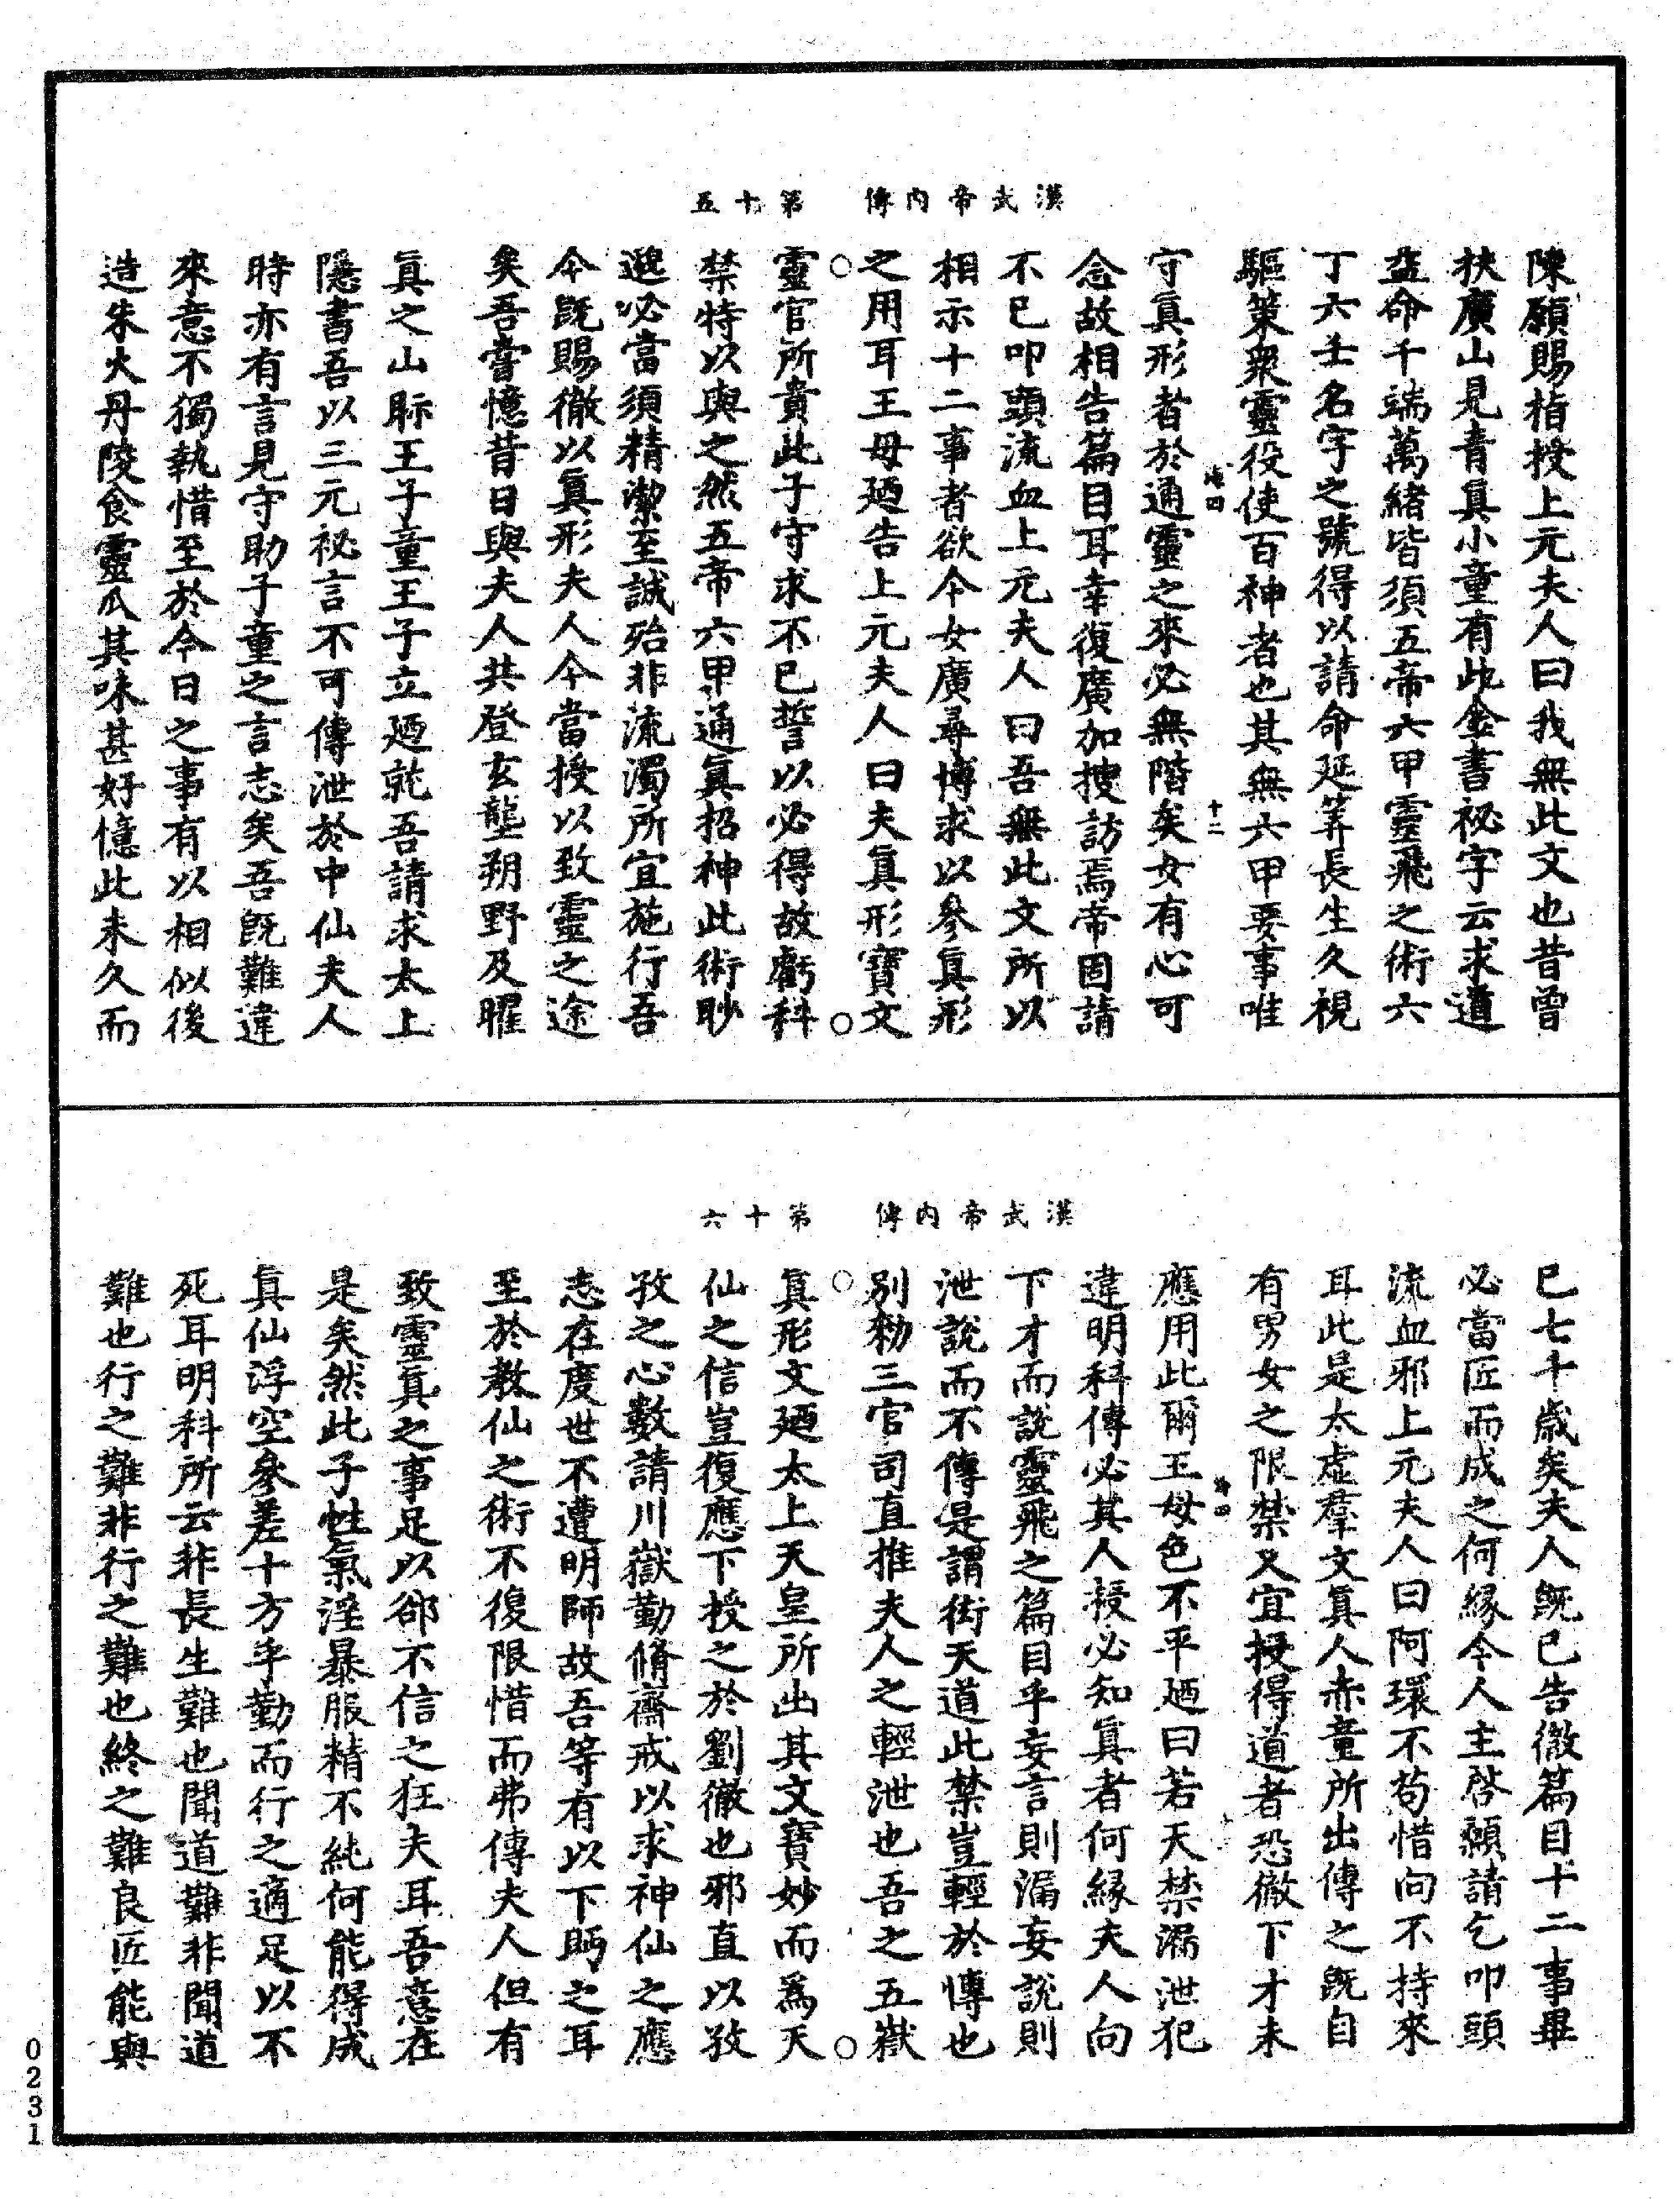 漢武帝内傳　第十五
陳願賜指授上元夫人曰我無此文也昔曾
扶廣山見青真小童有此金書祕字云求道
益命千端萬緒皆須五帝六甲靈飛之術六
丁六壬名字之號得以請命延筭長生久視
驅策衆靈役使百神者也其無六甲要事唯
守真形者於通靈之來必無階矣女有心可
念故相告篇目耳幸復廣加搜訪焉帝固請
不已叩頭流血上元夫人曰吾無此文所以
相示十二事者欲令女廣尋博求以參真形
之用耳王母廼告上元夫人曰夫真形寶文
靈官所貴此子守求不已誓以必得故虧科
禁特以與之然五帝六甲通真招神此術眇
邈必當須精潔至誠殆非流濁所宜施行吾
今既賜徹以真形夫人今當授以致靈之途
矣吾嘗憶昔日與夫人共登玄壟朔野及曜
真之山眎王子童王子立廼就吾請求太上
隱書吾以三元祕言不可傳泄於中仙夫人
時亦有言見守助子童之言志矣吾既難違
來意不獨執惜至於今日之事有以相似後
造朱火丹陵食靈瓜其味甚好憶此未久而
漢武帝内傳　第十六
已七千歲矣夫人既已告徹篇目十二事畢
必當匠而成之何緣令人主啓顙請乞叩頭
流血邪上元夫人曰阿環不苟惜向不持來
耳此是太虛羣文真人赤童所出傳之既自
有男女之限禁又宜授得道者恐徹下才未
應用此爾王母色不平廼曰若天禁漏泄犯
違明科傳必其人授必知真者何緣夫人向
下才而說靈飛之篇目乎妄言則漏妄說則
泄說而不傳是謂衒天道此禁豈輕於傳也
别勑三官司直推夫人之輕泄也吾之五嶽
真形文廼太上天皇所出其文寶妙而爲天
仙之信豈復應下授之於劉徹也邪直以孜
孜之心數請川嶽勤脩齋戒以求神仙之應
志在度世不遭明師故吾等有以下眄之耳
至於教仙之術不復限惜而弗傳夫人但有
致靈真之事足以郤不信之狂夫耳吾意在
是矣然此子性氣淫暴服精不純何能得成
真仙浮空參差十方乎勤而行之適足以不
死耳明科所云非長生難也聞道難非聞道
難也行之難非行之難也終之難良匠能與
0231